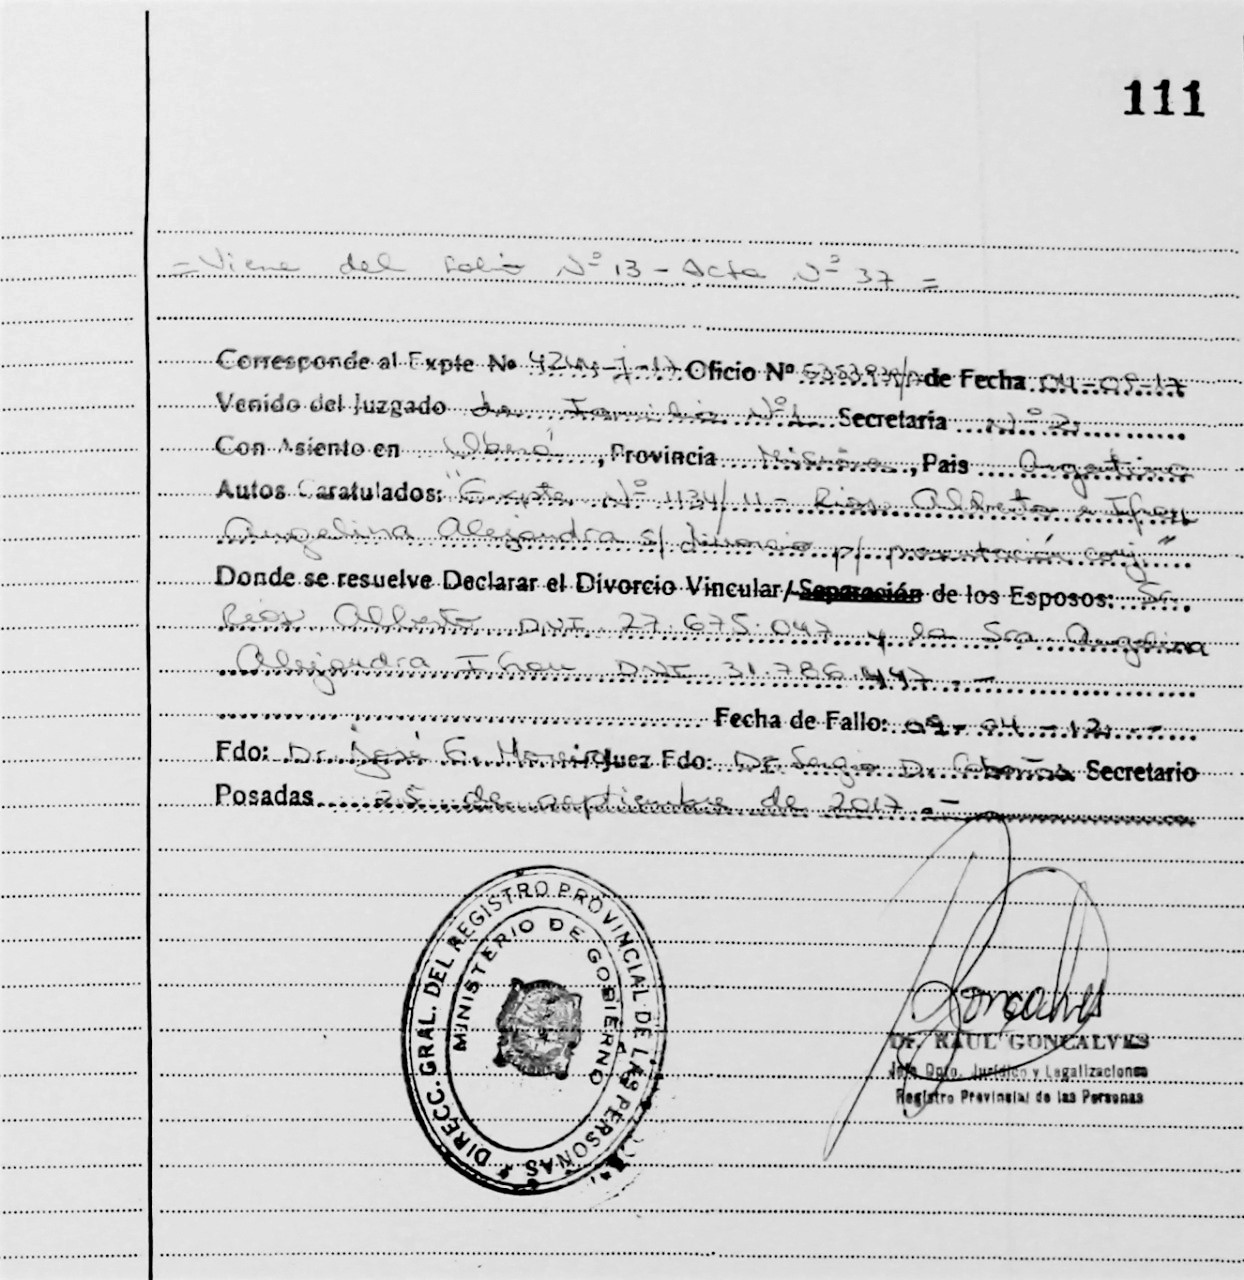 111
= Viene del folio Nº 13 - Acta Nº 37 =
Corresponde al Expte Nº Oficio Nº de Fecha 04-09-17
Venido del Juzgado de Familia Nº 1 Secretaria Nº 2
Con Asiento en Oberá, Provincia Misiones, Pais Argentina
Autos Caratulados: "Expte Nº 1134/11 - Rios Alberto e
Angelina Alejandra s/ divorcio p/ presentación conj"
Donde se resuelve Declarar el Divorcio Vincular/Separación de los Esposos: Sr.
Rios Alberto DNI 27.675.047 y la Sra Angelina
Alejandra DNI 31.786.447.-
Fecha de Fallo: 09-04-12.-
Fdo: Dr. José G. Juez Fdo: Dr Sergio D. Secretario
Posadas 25 de septiembre de 2017.-
DIRECC. GRAL. DEL REGISTRO PROVINCIAL DE LAS PERSONAS
MINISTERIO DE GOBIERNO
Goncalves
Dr. RAUL GONCALVES
Jefe Dpto. Jurídico y Legalizaciones
Registro Provincial de las Personas